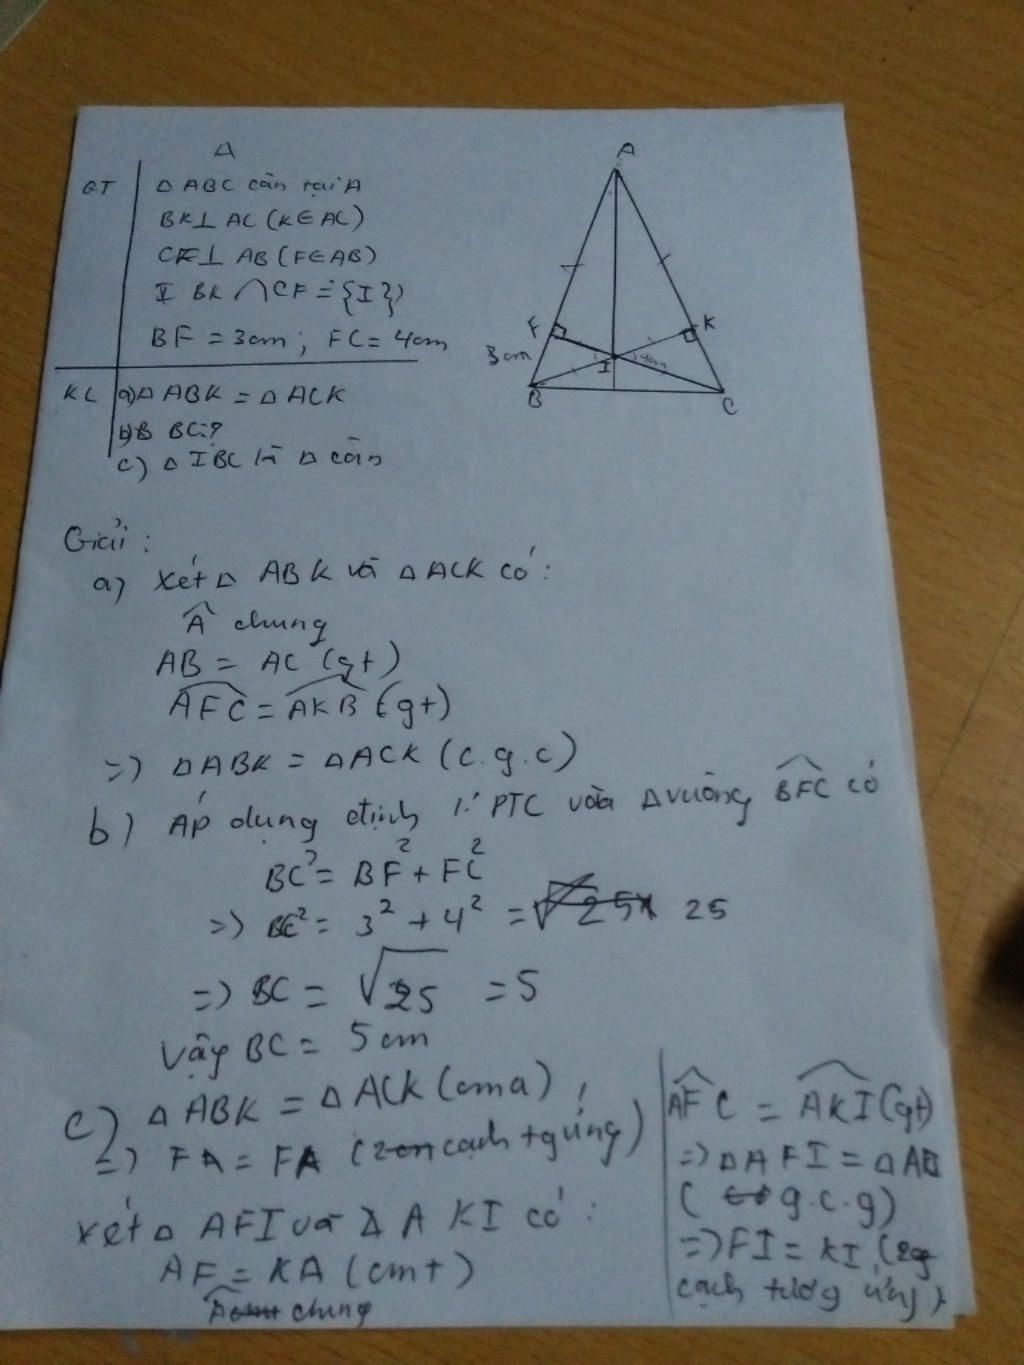 A
GT
Δ ABC cân tại A
BK⊥ AC (K∈AC)
CF⊥ AB (F∈AB)
I BK ∩ CF = {I}
BF = 3cm; FC = 4cm
KL
a) Δ ABK = Δ ACK
b) BC?
c) Δ IBC là Δ cân
A
F
K
3cm
I
4cm
B
C
Giải:
a) xét Δ ABK và Δ ACK có:
Â chung
AB = AC (gt)
AFC = AKB (gt)
=) ΔABK = ΔACK (c.g.c)
b) Áp dụng định lí PTC vào Δvuông BFC có
BC² = BF² + FC²
=) BC² = 3² + 4² = 25
=) BC = √25 = 5
Vậy BC = 5cm
c) Δ ABK = Δ ACK (cma)
=) FA = FA (cạch tg ứng)
xét Δ AFI và Δ AKI có:
AF = KA (cmt)
chung
AFC = AKI (gt)
=) Δ AFI = Δ
( g.c.g)
=) FI = KI (2
cạch tương ứng)